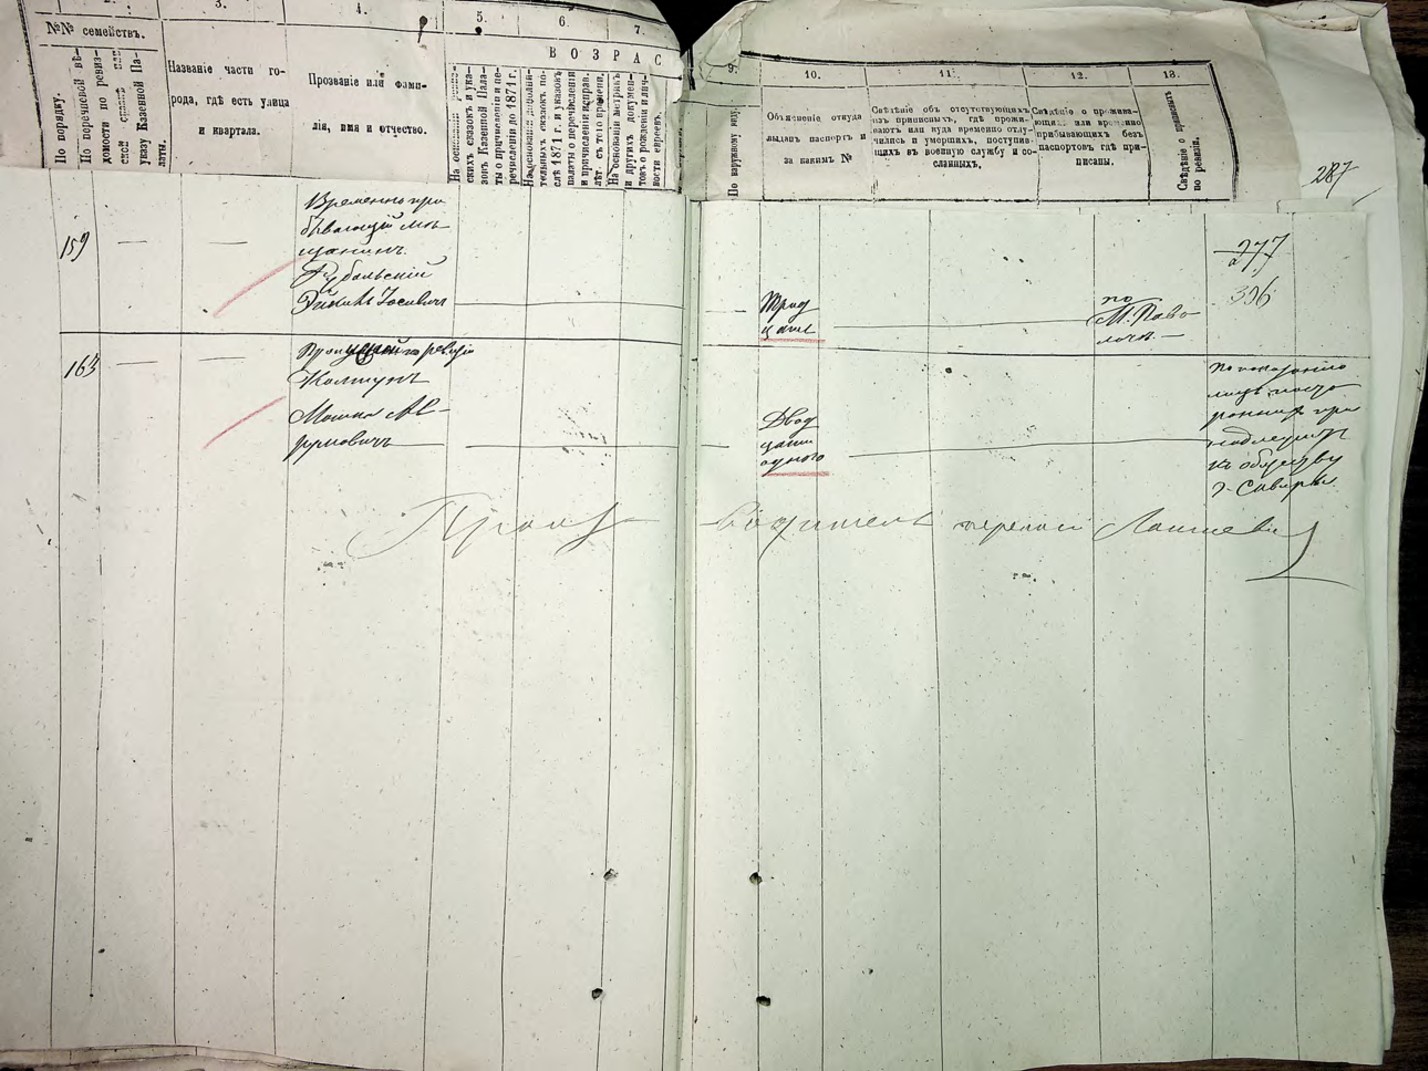 3.
4.
5.
6.
7.
№№ семействъ.
В О З Р А С
По порядку.
По перечневой вѣ-
домости по ревиз-
ской
указу Казенной Па-
латы.
Названіе части го-
рода, гдѣ есть улица
и квартала.
Прозваніе или фами-
лія, имя и отчество.
На основаніи
скихъ сказокъ и ука-
зовъ Казенной Пала-
ты о причисленіи и пе-
речисленіи до 1871 г.
На основаніи дополни-
тельныхъ сказокъ по-
слѣ 1871 г. и указовъ
палаты о перечисленіи
и причисленіи исправ.
лѣт. съ того времени.
На основаніи метрикъ
и другихъ докумен-
товъ о рожденіи и лич-
ности евреевъ.
9.
10.
11.
12.
13.
По наружному виду.
Объясненіе откуда
выданъ паспортъ и
за какимъ №
Свѣдѣніе объ отсутствующихъ
изъ приписныхъ, гдѣ прожи-
ваютъ или куда временно отлу-
чились и умершихъ, поступив-
щихъ въ военную службу и со-
сланныхъ.
Свѣдѣніе о прожива-
ющихъ или временно
прибывающихъ безъ
паспортовъ гдѣ при-
писаны.
Свѣдѣніе о припискѣ
по ревизіи.
287
159
Временно про
бывающій мѣ-
щанинъ.
Іосевичъ
Трид
цати
по
М. Паво-
лочи.
277
396
163
по ревизіи
Колтунъ
Мошко Ав-
румовичъ
Двад
цати
одного
по показанію
лицъ посто
роннихъ при
надлежитъ
къ обществу
Сквиры.
Произ-
водитель переписи